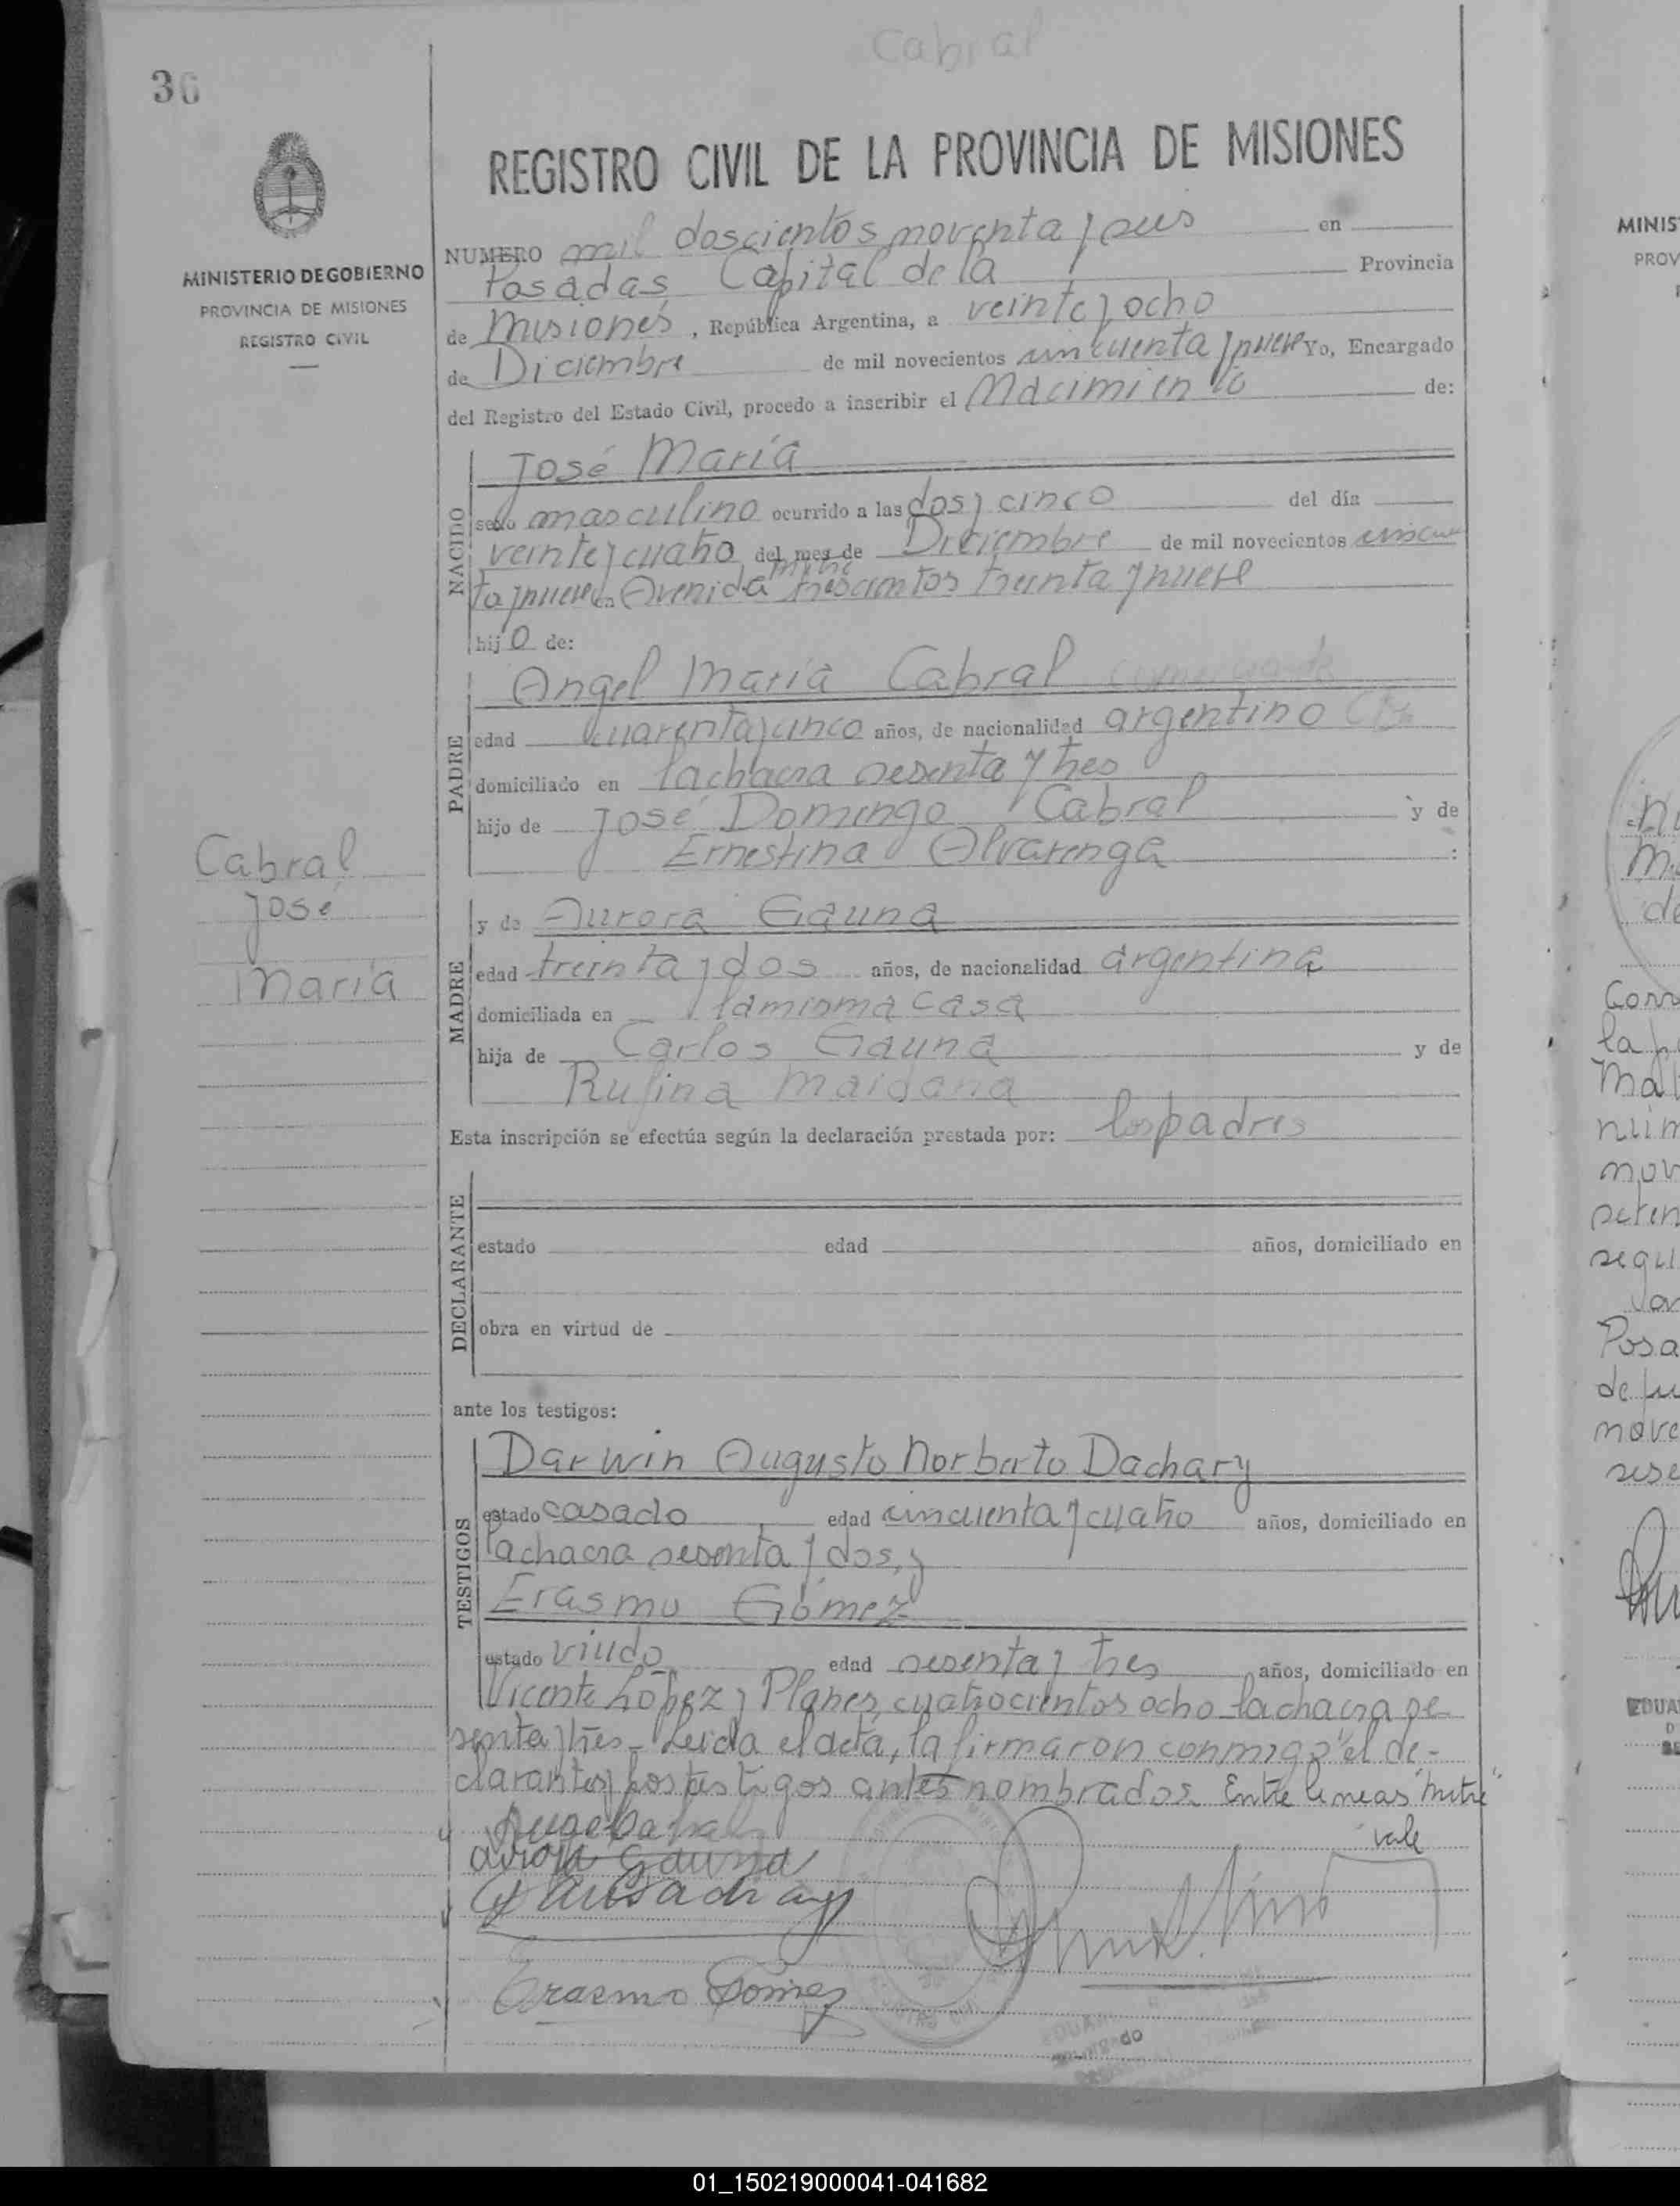 Cabral
36
REGISTRO CIVIL DE LA PROVINCIA DE MISIONES
MINISTERIO DE GOBIERNO
PROVINCIA DE MISIONES
REGISTRO CIVIL
NUMERO mil doscientos noventa y seis en
Posadas Capital de la Provincia
de Misiones, República Argentina, a veinte y ocho
de Diciembre de mil novecientos cincuenta y nueve Yo, Encargado
del Registro del Estado Civil, procedo a inscribir el Nacimiento de:
NACIDO
José María
sexo masculino ocurrido a las dos y cinco del día
veinte y cuatro del mes de Diciembre de mil novecientos cincuen
Mitre
ta y nueve en Avenida trescientos treinta y nueve
hijo de:
PADRE
Angel María Cabral comerciante
edad cuarenta y cinco años, de nacionalidad argentino
domiciliado en la chacra sesenta y tres
hijo de José Domingo Cabral y de
Ernestina Alvarenga :
Cabral
José
María
MADRE
y de Aurora Gauna
edad treinta y dos años, de nacionalidad argentina
domiciliada en la misma casa
hija de Carlos Gauna y de
Rufina Maidana
Esta inscripción se efectúa según la declaración prestada por: los padres
DECLARANTE
estado edad años, domiciliado en
obra en virtud de
ante los testigos:
TESTIGOS
Darwin Augusto Norberto Dachary
estado casado edad cincuenta y cuatro años, domiciliado en
la chacra sesenta y dos, y
Erasmo Gómez
estado viudo edad sesenta y tres años, domiciliado en
Vicente López y Planes, cuatrocientos ocho la chacra se-
senta y tres - Leida el acta, la firmaron conmigo el de-
clarantes y los testigos antes nombrados. Entre lineas "Mitre"
vale
Aurora Gauna
Erasmo Gómez
MINIS
PROV
Posa
01_150219000041-041682